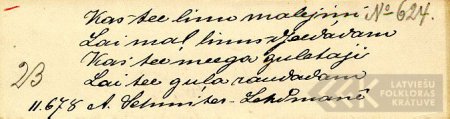 Kas tee linu malejini No 624.
Lai mal linus dzeedādam
Kas tee meega guletaji
Lai tee gula raudadam
23
11.678 A. Lehmanē
LATVIEŠU
FOLKLORAS
KRĀTUVE